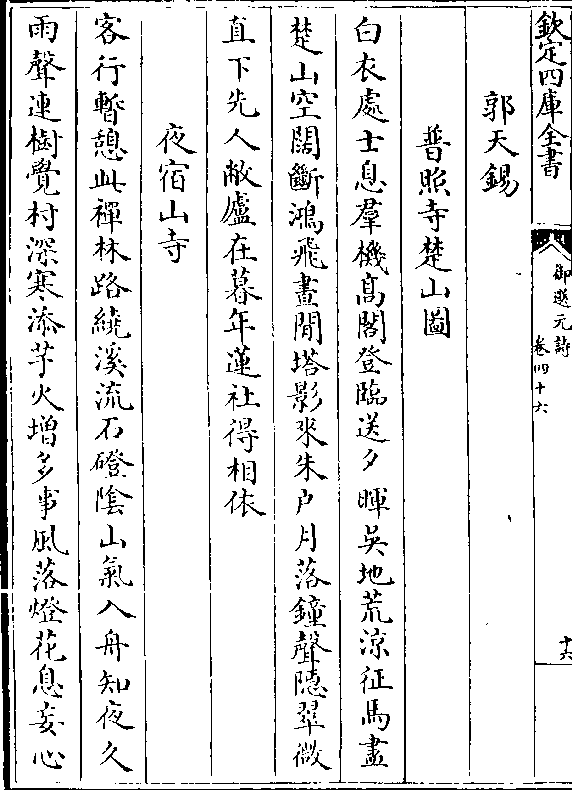 欽定四庫全書
御選元詩
卷四十六
十六
郭天錫
普照寺楚山圖
白衣處士息羣機髙閣登臨送夕暉吳地荒涼征馬盡
楚山空闊斷鴻飛晝閒塔影來朱户月落鐘聲隠翠微
直下先人敝廬在暮年蓮社得相依
夜宿山寺
客行暫憩此禪林路繞溪流石磴陰山氣入舟知夜久
雨聲連樹覺村深寒添芋火増多事風落燈花息妄心